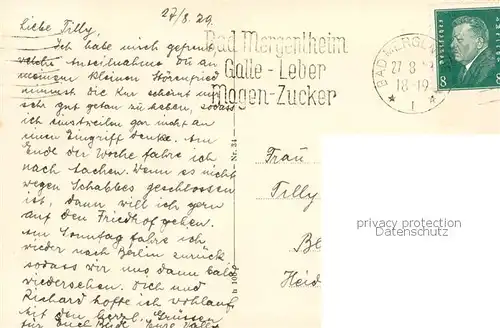 27/8.29.
Liebe Tilly,
Ich habe mich gefreut,
welche Anteilnahme Du an
meinem kleinen Störenfried
nimmst. Die Kur scheint mir
sehr gut getan zu haben, sodass
ich einstweilen gar nicht an
einen Eingriff denke. Am
Ende der Woche fahre ich
nach Aachen. Wenn es nicht
wegen Schabbes geschlossen
ist, dann will ich gern
auf den Friedhof gehen.
Am Sonntag fahre ich
wieder nach Berlin zurück
sodass wir uns dann bald
wiedersehen. Dich und
Richard hoffe ich wohlauf.
Mit den herzl. Grüssen
für Euch Beide Eure
Bad Mergentheim
Galle-Leber
Magen-Zucker
BAD MERGEN
27 8
18-19
* I *
Deutsches
8 8
Nr. 34
Frau
Tilly
Be
Heid
privacy protection
Datenschutz